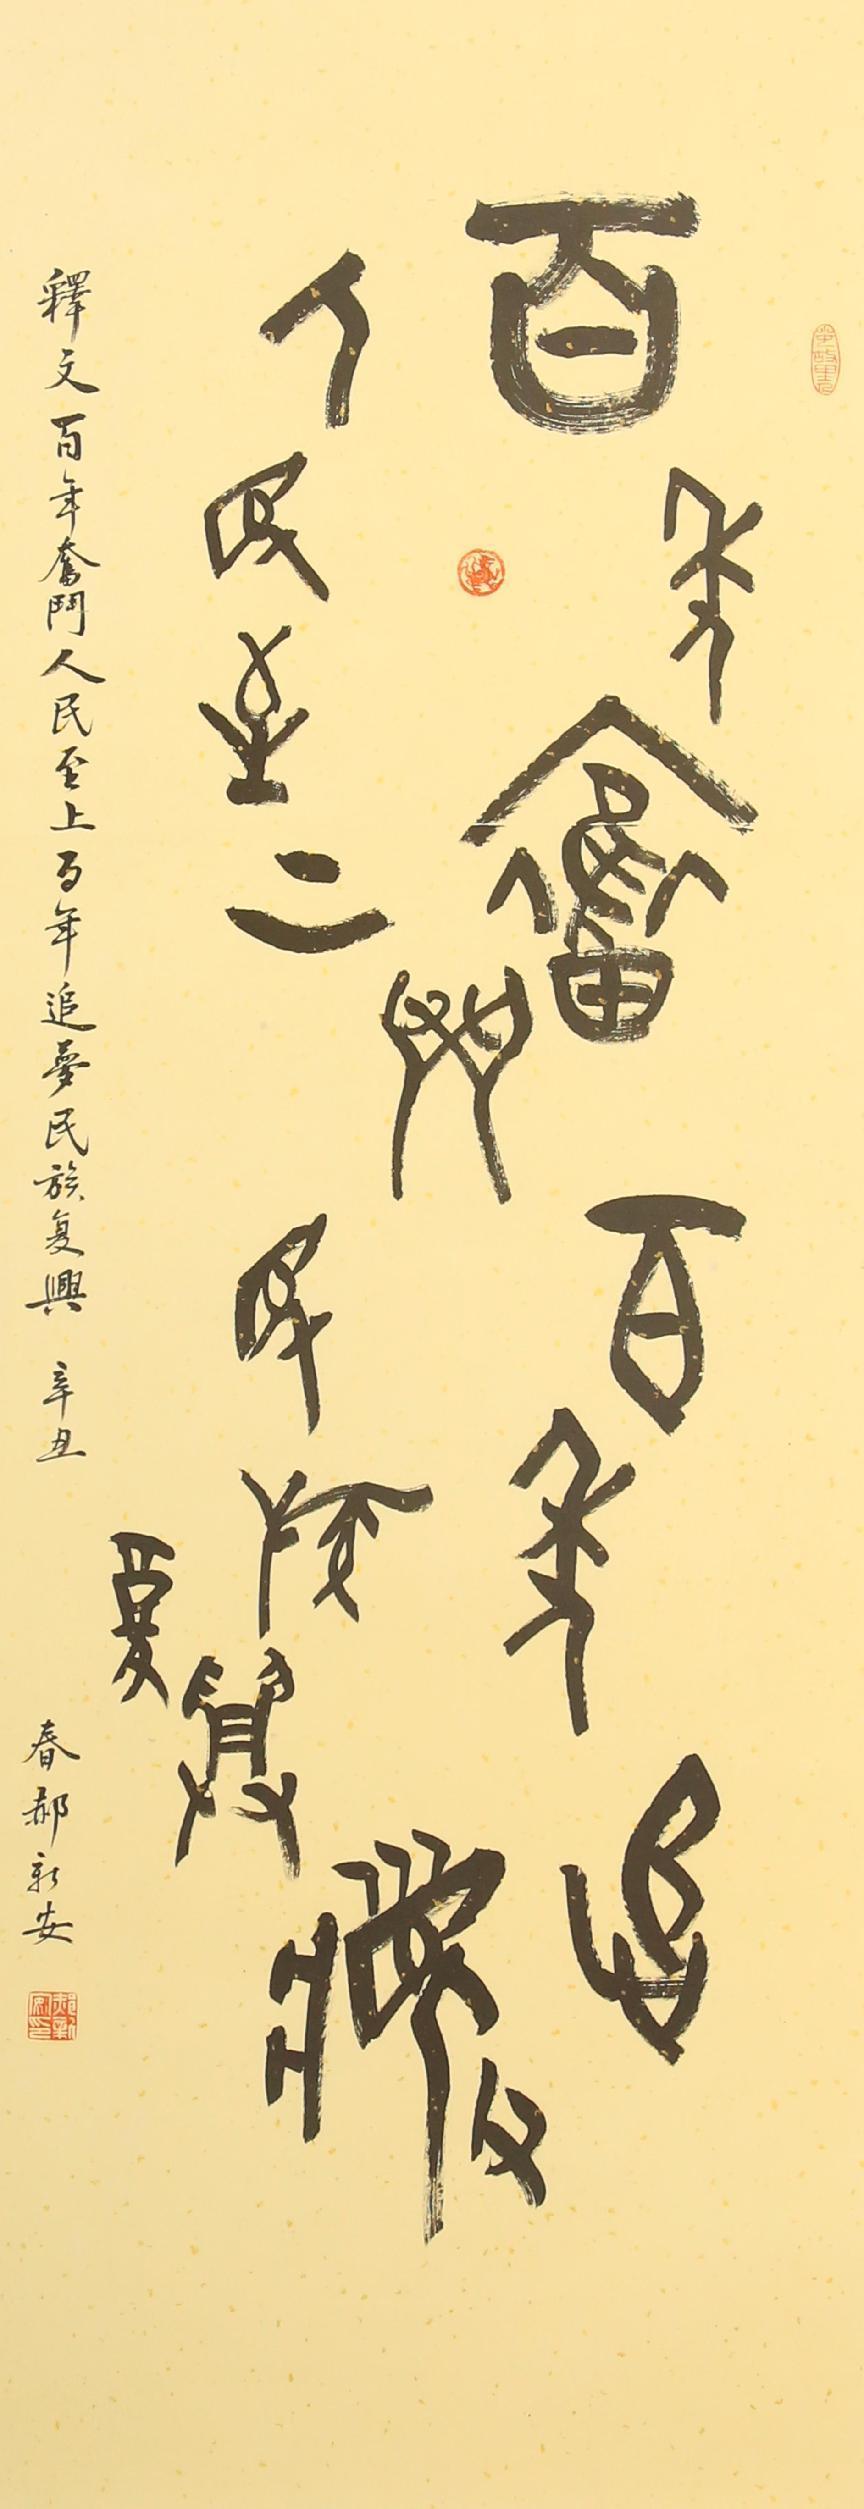 百年奮鬥百年追夢
人民至上民族复興
釋文百年奮鬥人民至上百年追夢民族复興 辛丑
春郝新安
郝新安印